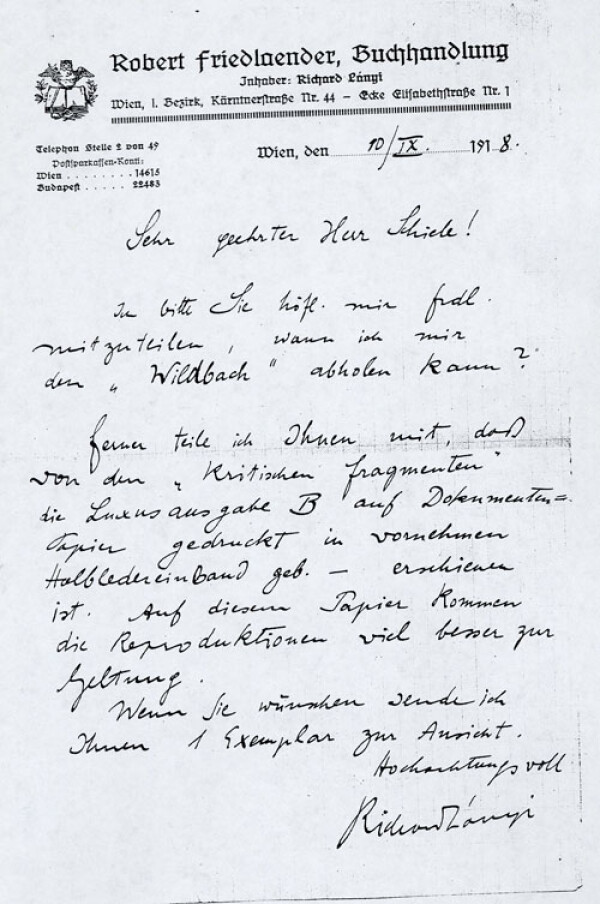 Robert Friedlaender, Buchhandlung
Inhaber: Richard Lányi
Wien, I. Bezirk, Kärntnerstraße Nr. 44 – Ecke Elisabethstraße Nr. 1
Telephon Stelle 2 von 49
Postsparkassen-Konti:
Wien . . . . . . . . 14615
Budapest . . . . . . 22483
Wien, den 10/IX. 1918.
Sehr geehrter Herr Schiele!
Ich bitte Sie höfl. mir frdl.
mitzuteilen, wann ich mir
den „Wildbach" abholen kann?
Ferner teile ich Ihnen mit, daß
von den „Kritischen Fragmenten"
die Luxusausgabe B auf Dokumenten=
Papier gedruckt in vornehmen
Halbledereinband geb. – erschienen
ist. Auf diesem Papier kommen
die Reproduktionen viel besser zur
Geltung.
Wenn Sie wünschen sende ich
Ihnen 1 Exemplar zur Ansicht.
Hochachtungsvoll
Richard Lányi